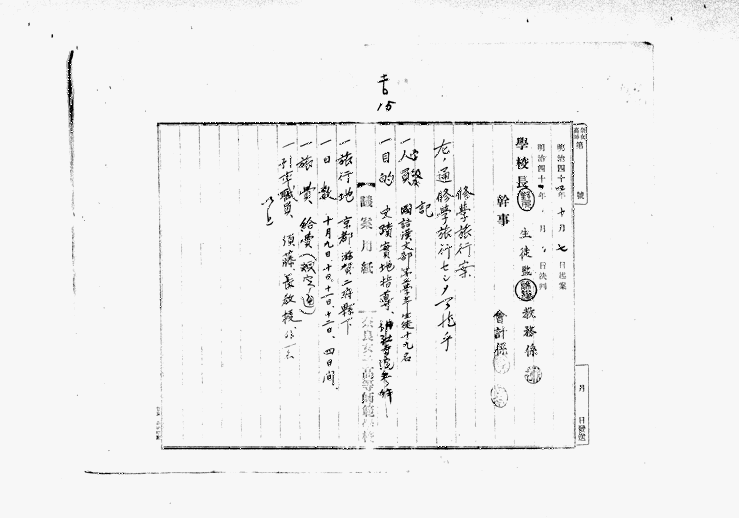 十五
奈良女高師
第 號
明治四十四年十月七日起案
明治四十 年 月 日行決判
學校長 生徒監 教務係
幹事 會計係
月 日發送
修學旅行案
左ノ通修學旅行セシメ可然乎
記
一人員 國語漢文部第三學年生徒十九名
一目的 史蹟實地指導、神社寺院參拝
一旅行地 京都滋賀二府縣下
一日數 十月九日、十日、十一日、十二日、四日間
一旅費 給費(規定ノ通)
一引率職員 須藤長教授
以上
回案用紙
奈良女子高等師範學校